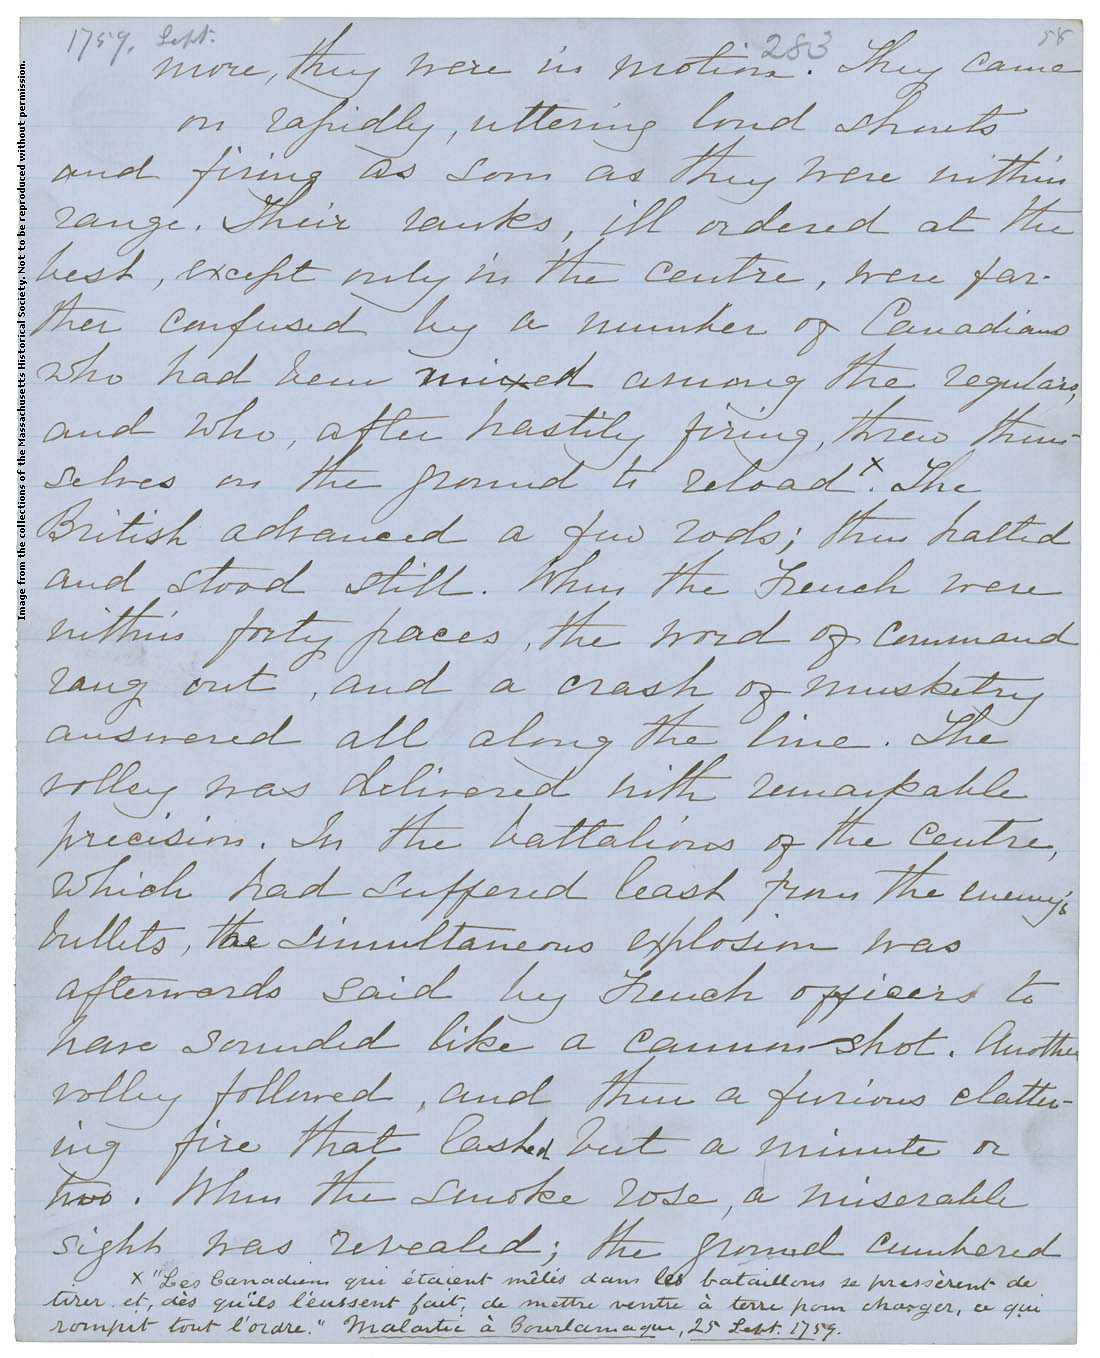 1759, Sept. 283 58
more, they were in motion. They came
on rapidly, uttering loud shouts
and firing as soon as they were within
range. Their ranks, ill ordered at the
best, except only in the centre, were far-
ther confused by a number of Canadians
who had been mixed among the regulars,
and who, after hastily firing, threw them-
selves on the ground to reload x. The
British advanced a few rods; then halted
and stood still. When the French were
within forty paces, the word of command
rang out, and a crash of musketry
answered all along the line. The
volley was delivered with remarkable
precision. In the battalions of the centre,
which had suffered least from the enemy's
bullets, the simultaneous explosion was
afterwards said by French officers to
have sounded like a cannon-shot. Another
volley followed, and then a furious clatter-
ing fire that lasted but a minute or
two. When the smoke rose, a miserable
sight was revealed; the ground cumbered
x "Les Canadiens qui étaient mêlés dans les bataillons se pressèrent de
tirer et, dès qu'ils l'eussent fait, de mettre ventre à terre pour charger, ce qui
rompit tout l'ordre." Malartic à Bourlamaque, 25 Sept. 1759.
Image from the collections of the Massachusetts Historical Society. Not to be reproduced without permission.